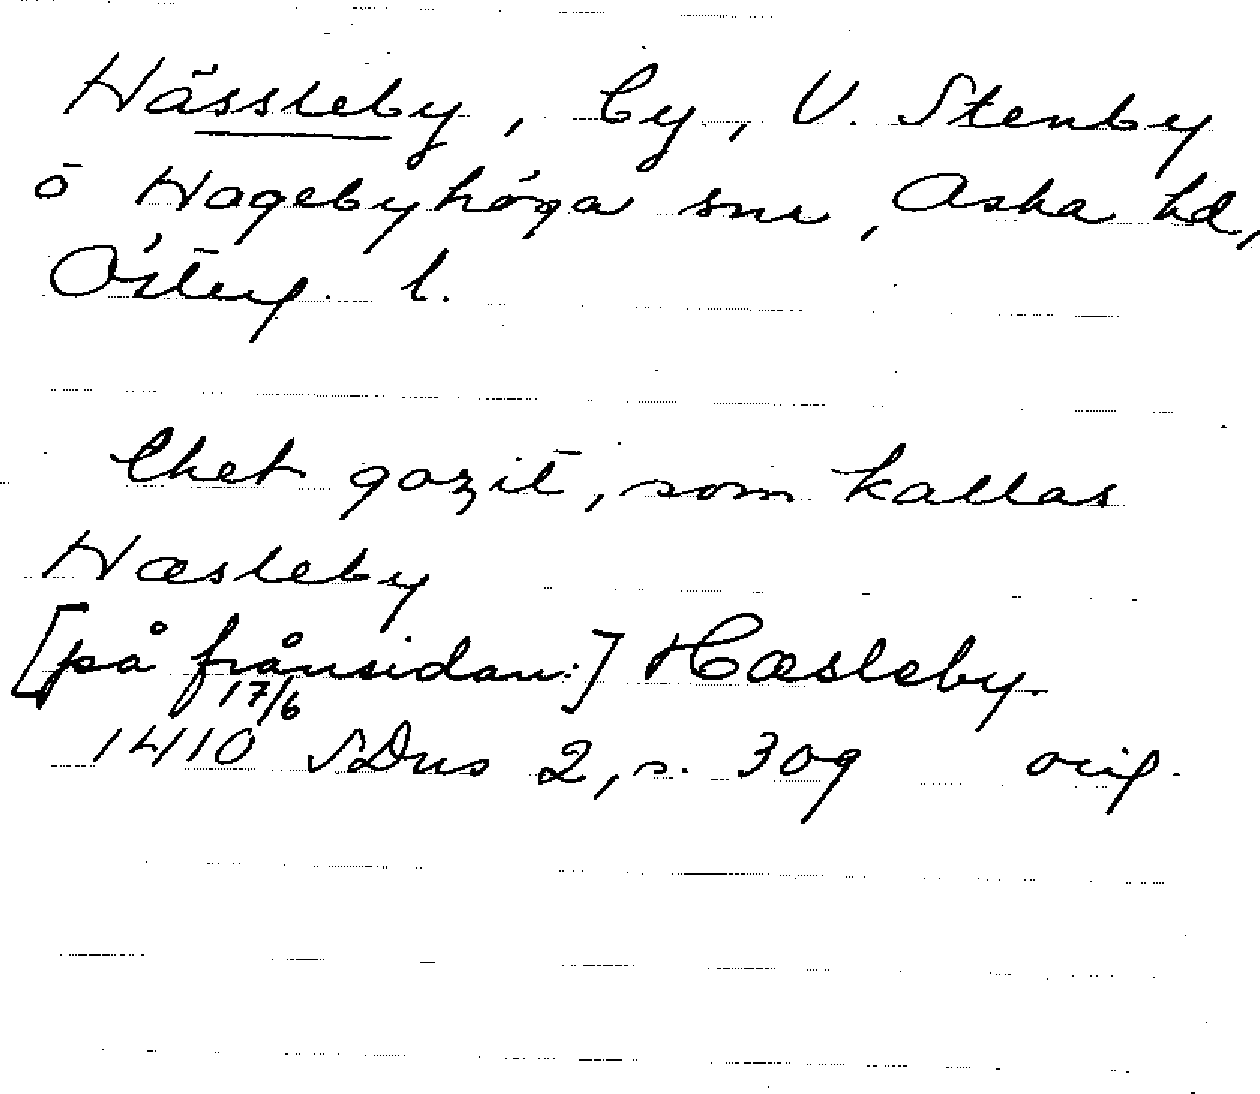 Hässleby, by, V. Stenby
o Hagebyhöga snr, Aska hd,
Österg. l.
Thet gozit, som kallas
Hæsleby
[på frånsidan:] Hæsleby.
17/6
1410 SDns 2, s. 309 orig.